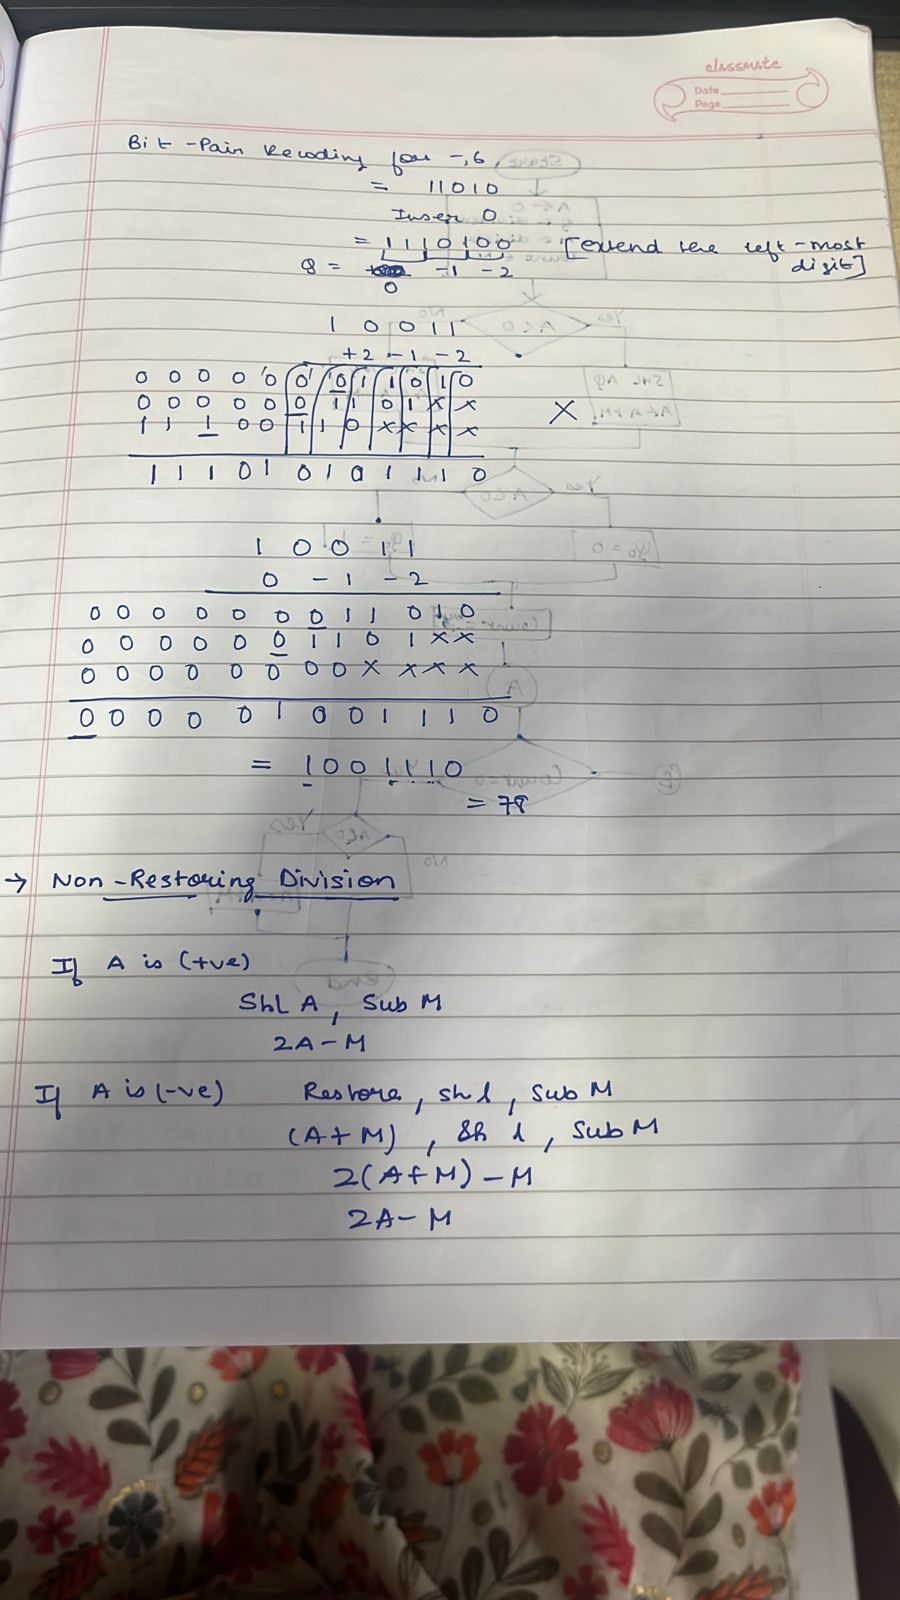 classmate
Date
Page
Bit-Pain Recoding for -6
= 11010
Inser 0
= 1110100 [extend the left-most digit]
Q = -1 -2
0
1 0 0 1 1
+2 -1 -2
0 0 0 0 0 0 0 1 1 0 1 0
0 0 0 0 0 0 1 1 0 1 x x
1 1 1 0 0 1 1 0 x x x x
X
1 1 1 0 1 0 1 0 1 1 1 0
1 0 0 1 1
0 -1 -2
0 0 0 0 0 0 0 1 1 0 1 0
0 0 0 0 0 0 1 1 0 1 x x
0 0 0 0 0 0 0 0 x x x x
0 0 0 0 0 1 0 0 1 1 1 0
= 1001110
= 78
→ Non-Restoring Division
If A is (+ve)
Shl A, Sub M
2A-M
If A is (-ve) Restore, shl, Sub M
(A+M), Sh l, Sub M
2(A+M)-M
2A-M